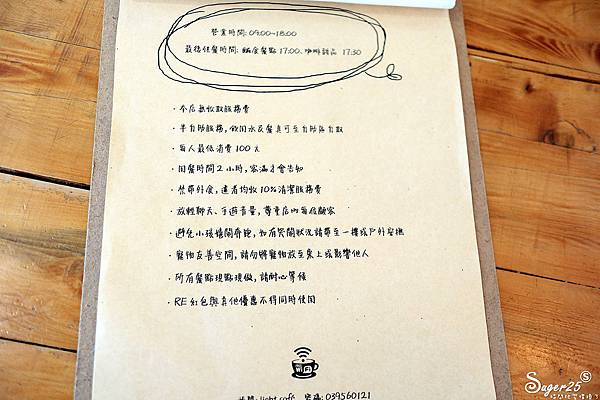 營業時間: 09:00~18:00
最後供餐時間: 鹹食餐點 17:00, 咖啡甜品 17:30
・本店無收取服務費
・半自助服務, 飲用水及餐具可至自助區自取
・每人最低消費 100 元
・用餐時間 2 小時, 客滿才會告知
・禁帶外食, 違者均收 10% 清潔服務費
・放輕聊天、手遊音量, 尊重店內每位顧客
・避免小孩嬉鬧奔跑, 如有哭鬧狀況請帶至一樓或戶外安撫
・寵物友善空間, 請勿將寵物放至桌上或影響他人
・所有餐點現點現做, 請耐心等候
・RE 紅包與其他優惠不得同時使用
light café 密碼: 039560121
Sugar25 S